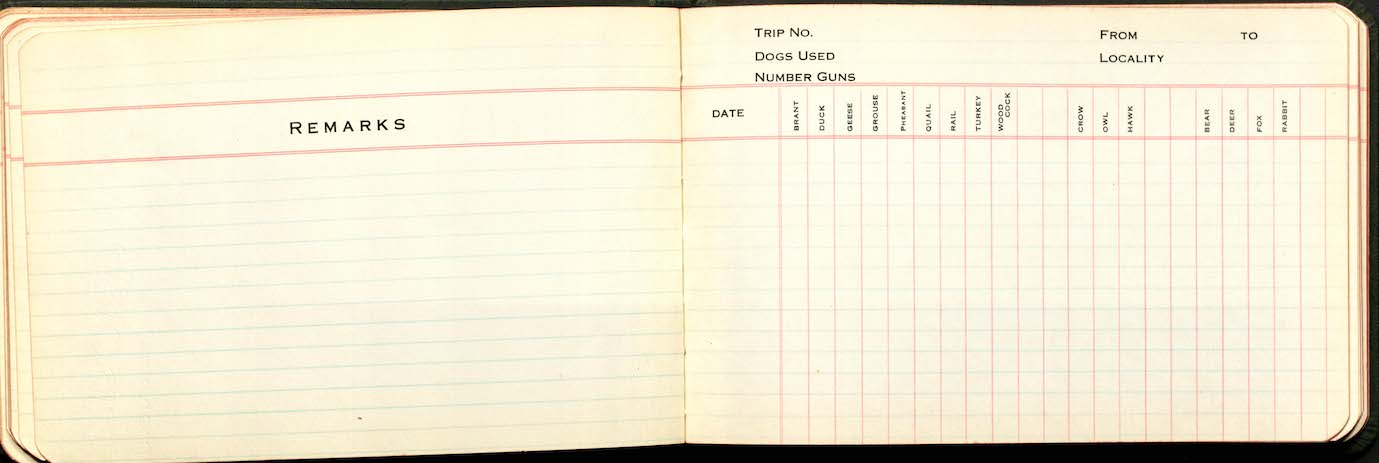 REMARKS
TRIP NO. FROM TO
DOGS USED LOCALITY
NUMBER GUNS
DATE BRANT DUCK GEESE GROUSE PHEASANT QUAIL RAIL TURKEY WOOD COCK CROW OWL HAWK BEAR DEER FOX RABBIT